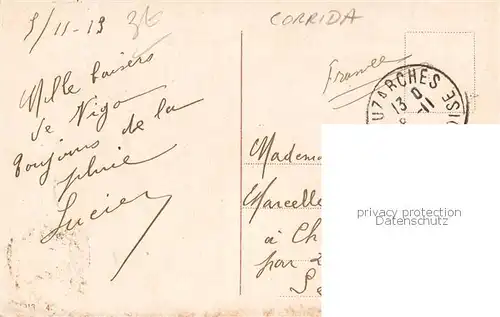 5/11-13
3€
CORRIDA
Mille baisers
de Vigo
toujours de la
pluie
Lucien
France
UZARCHES
OISE
13
-11
Madem
Marcelle
à Ch
par
privacy protection
Datenschutz